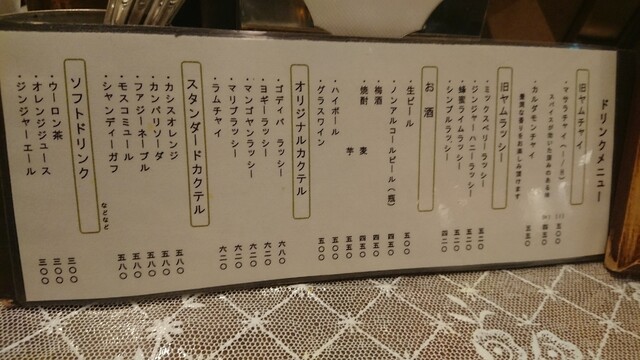 ドリンクメニュー
旧ヤムチャイ
・マサラチャイ(I/H)
スパイスが効いた深みのある味
五〇〇
四五〇
・カルダモンチャイ 五五〇
豊潤な香りをお楽しみ頂けます
旧ヤムラッシー
・ミックスベリーラッシー 五二〇
・ジンジャーハニーラッシー 五二〇
・蜂蜜ライムラッシー 五二〇
・シンプルラッシー 四二〇
お酒
・生ビール 五〇〇
・ノンアルコールビール(瓶) 四五〇
・梅酒 四五〇
・焼酎 麦 四五〇
芋 五五〇
・ハイボール 五〇〇
・グラスワイン 五〇〇
オリジナルカクテル
・ゴディバ ラッシー 六八〇
・ヨギーラッシー 六二〇
・マンゴヤンラッシー 六二〇
・マリブラッシー 六二〇
・ラムチャイ 六二〇
スタンダードカクテル
・カシスオレンジ 五八〇
・カンパリソーダ 五八〇
・ファジーネーブル 五八〇
・モスコミュール 五八〇
・シャンディーガフ 五八〇
などなど
ソフトドリンク
・ウーロン茶 三〇〇
・オレンジジュース 三〇〇
・ジンジャーエール 三〇〇